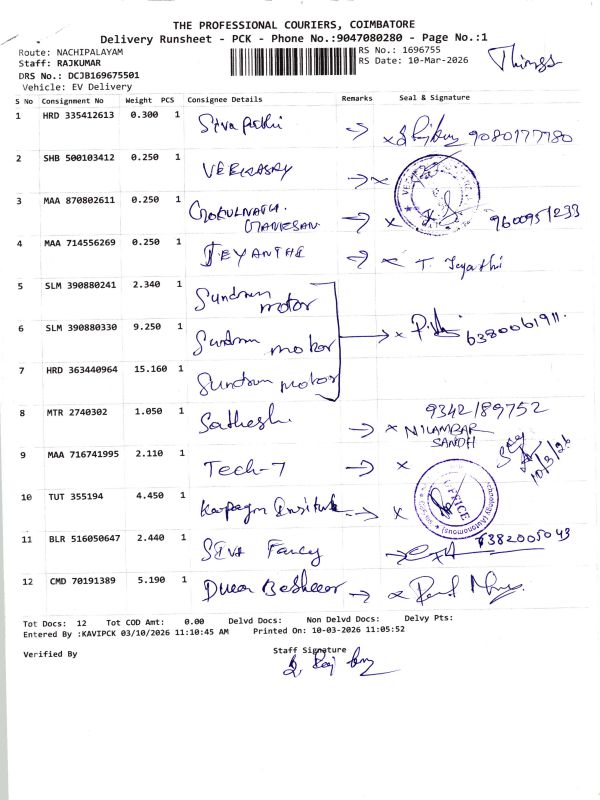 THE PROFESSIONAL COURIERS, COIMBATORE
Delivery Runsheet - PCK - Phone No.:9047080280 - Page No.:1
Route: NACHIPALAYAM
RS No.: 1696755
Things
Staff: RAJKUMAR
RS Date: 10-Mar-2026
DRS No.: DCJB169675501
Vehicle: EV Delivery
S No Consignment No Weight PCS Consignee Details Remarks Seal & Signature
1 HRD 335412613 0.300 1 9080177780
2 SHB 500103412 0.250 1
3 MAA 870802611 0.250 1 GOKULNATH. GANESAN. 9600951233
4 MAA 714556269 0.250 1 JEYANTHI
5 SLM 390880241 2.340 1 Sundram motor
6 SLM 390880330 9.250 1 Sundram motor 6380061911.
7 HRD 363440964 15.160 1 Sundram motor
8 MTR 2740302 1.050 1 Sathesh. 9342189752 NILAMBAR SANDH
9 MAA 716741995 2.110 1 Tech-7 10/3/26
10 TUT 355194 4.450 1 OFFICE
11 BLR 516050647 2.440 1 SIVA Fancy 6382005043
12 CMD 70191389 5.190 1
Tot Docs: 12 Tot COD Amt: 0.00 Delvd Docs: Non Delvd Docs: Delvy Pts:
Entered By :KAVIPCK 03/10/2026 11:10:45 AM Printed On: 10-03-2026 11:05:52
Verified By
Staff Signature